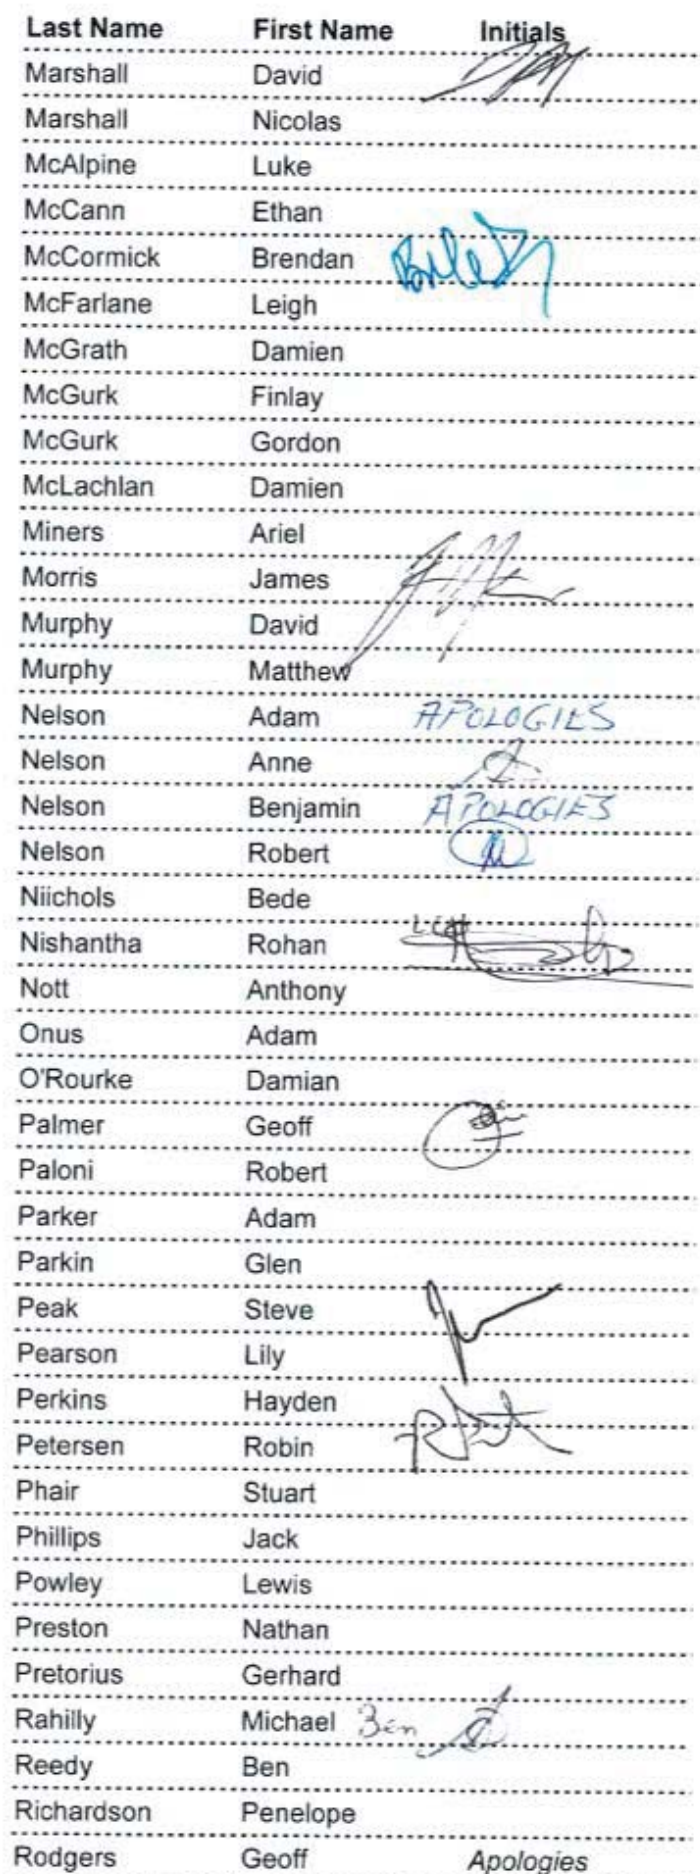 Last Name First Name Initials
Marshall David
Marshall Nicolas
McAlpine Luke
McCann Ethan
McCormick Brendan
McFarlane Leigh
McGrath Damien
McGurk Finlay
McGurk Gordon
McLachlan Damien
Miners Ariel
Morris James
Murphy David
Murphy Matthew
Nelson Adam APOLOGIES
Nelson Anne
Nelson Benjamin APOLOGIES
Nelson Robert
Niichols Bede
Nishantha Rohan
Nott Anthony
Onus Adam
O'Rourke Damian
Palmer Geoff
Paloni Robert
Parker Adam
Parkin Glen
Peak Steve
Pearson Lily
Perkins Hayden
Petersen Robin
Phair Stuart
Phillips Jack
Powley Lewis
Preston Nathan
Pretorius Gerhard
Rahilly Michael Ben
Reedy Ben
Richardson Penelope
Rodgers Geoff Apologies